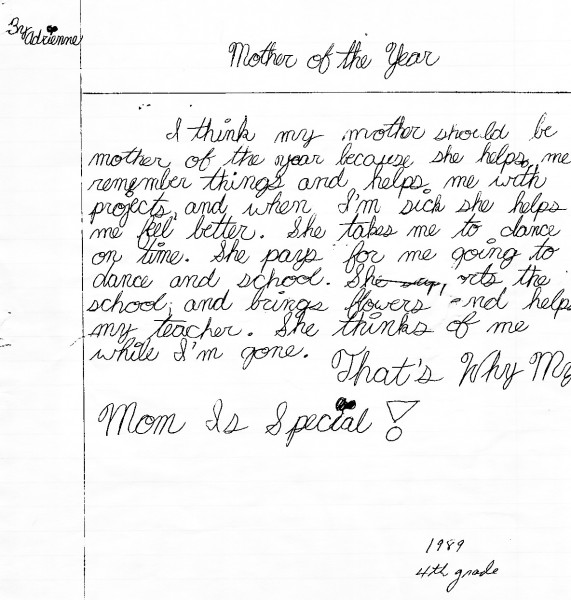 By Adrienne
Mother of the Year
I think my mother should be
mother of the year because she helps me
remember things and helps me with
projects, and when I'm sick she helps
me feel better. She takes me to dance
on time. She pays for me going to
dance and school. She orts the
school, and brings flowers and helps
my teacher. She thinks of me
while I'm gone. That's Why My
Mom Is Special!
1989
4th grade